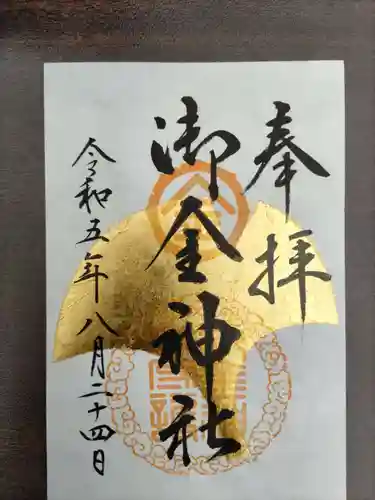 奉拝
御金神社
令和五年八月二十四日